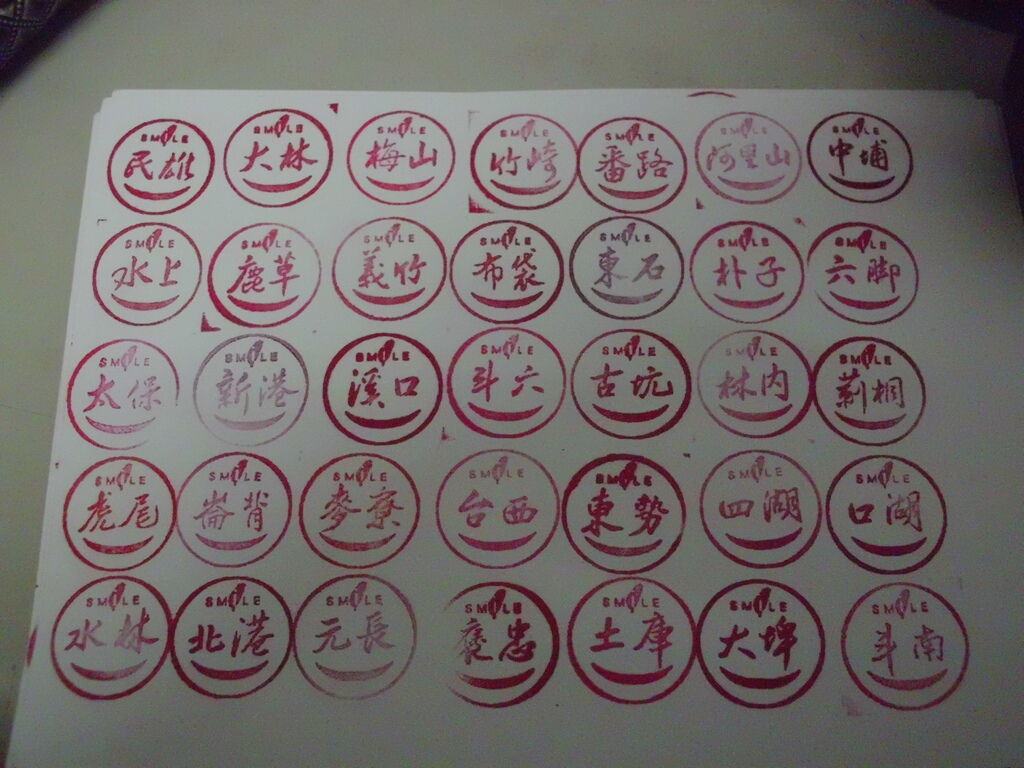 SMILE 民雄 SMILE 大林 SMILE 梅山 SMILE 竹崎 SMILE 番路 SMILE 阿里山 SMILE 中埔
SMILE 水上 SMILE 鹿草 SMILE 義竹 SMILE 布袋 SMILE 東石 SMILE 朴子 SMILE 六脚
SMILE 太保 SMILE 新港 SMILE 溪口 SMILE 斗六 SMILE 古坑 SMILE 林内 SMILE 莿桐
SMILE 虎尾 SMILE 崙背 SMILE 麥寮 SMILE 台西 SMILE 東勢 SMILE 四湖 SMILE 口湖
SMILE 水林 SMILE 北港 SMILE 元長 SMILE 褒忠 SMILE 土庫 SMILE 大埤 SMILE 斗南